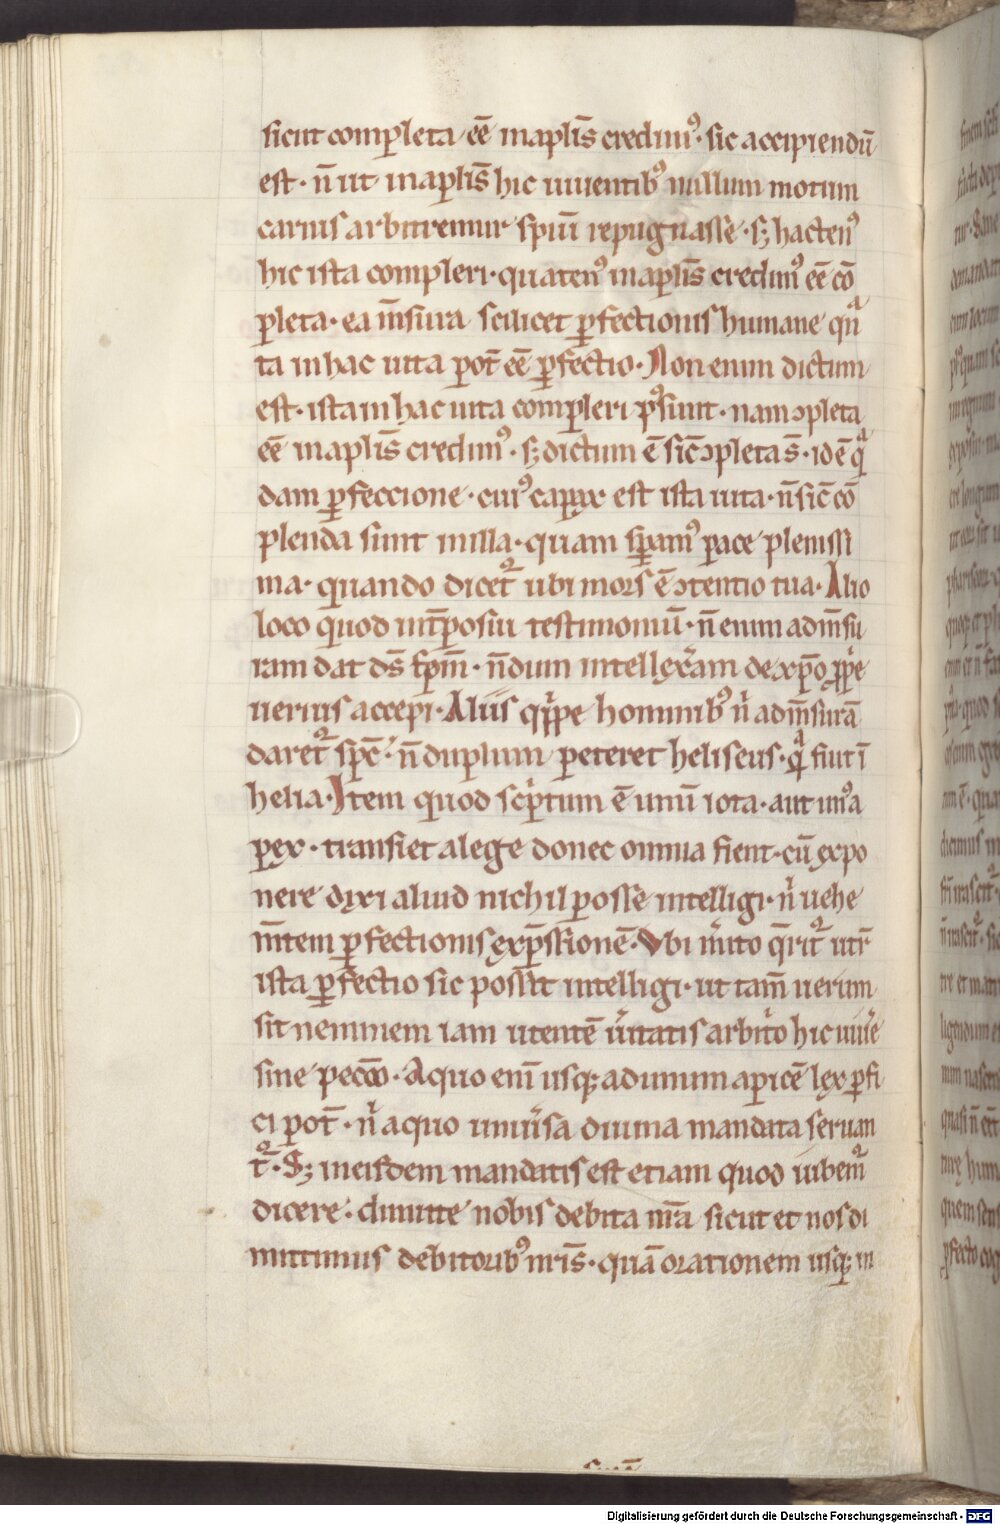 sicut completa eē in aplīs credimꝰ· sic accipiendū
est· n̄ ut in aplīs hic uiuentibꝰ nullum motum
carnis arbitremur spiui repugnasse· sꝫ hactenꝰ
hic ista compleri· quatenꝰ in aplīs credimꝰ eē cō
pleta· ea m̄sura scilicet ꝑfectionis humane qͣn
ta in hac uita pot̄ eē ꝑfectio· Non enim dictum
est· ista in hac uita compleri pꝰsunt· nam ꝯpleta
eē in aplīs credimꝰ· sꝫ dictum ē sic ꝯpleta s̄· id ē qͣ
dam ꝑfeccione· cuiꝰ capax est ista uita· n̄ sic cō
plenda sunt in illa· quam speramꝰ pace plenissi
ma· quando dicet᷑ ubi mors ē ꝯtentio tua· Alio
loco quod int̄posui testimoniū· n̄ enim ad m̄su
ram dat ds̄ sp̄m̄· n̄dum intellex̄am de xp̄o ꝓpe
uerius accepi· Aliis q̇ppe hominibꝰ nͥ ad m̄surā
daret᷑ spc̄· n̄ duplum peteret heliseus· qͣ fuit ī
helia· Item quod scͥptum ē unū iota· aut unꝰ a
pex· transiet a lege donec omnia fient· cū expo
nere dixi aliud nichil posse intelligi· nͥ uehe
m̄tem ꝑfectionis exp̄ssionē· Vbi mͥito q̄rit᷑ utr̄
ista ꝑfectio sic possēt intelligi· ut tam̄ uerum
sit neminem iam utentē uͥtatis arbitͥo hic uiuͥe
sine pecco· A quo eni usqꝫ ad unum apicē lex ꝑfi
ci pot̄· nͥ a quo uniuͥsa diuina mandata seruan
t᷑· Sꝫ in eisdem mandatis est etiam quod iubem᷑
dicere· dimitte nobis debita nr̄a sicut et nos di
mittimus debitoribꝰ nr̄is· quā orationem usqꝫ in
Digitalisierung gefördert durch die Deutsche Forschungsgemeinschaft - DFG